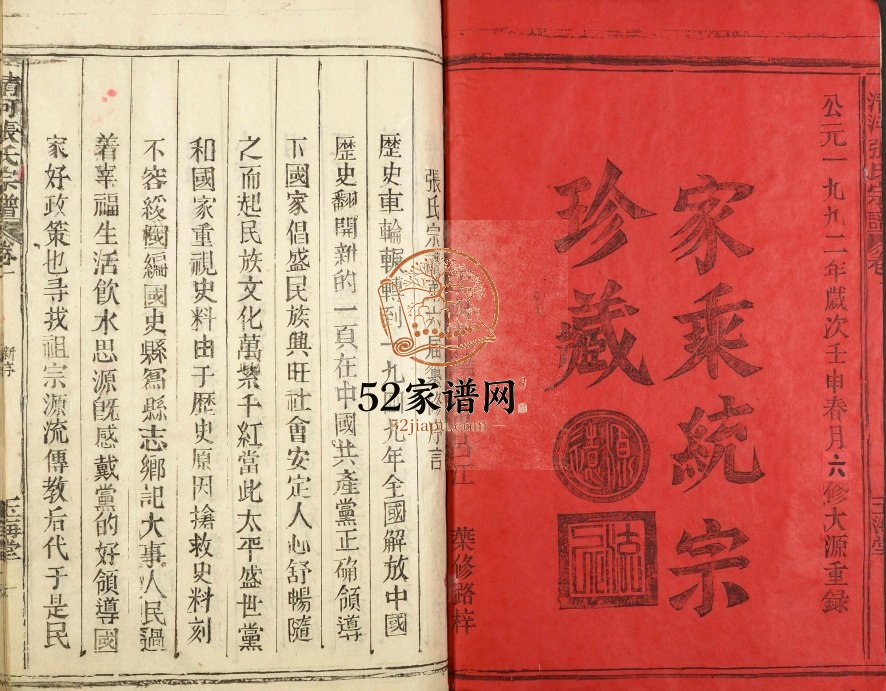 公元一九九二年歲次壬申春月六修大源重録
家乘統宗
珍藏
葉修路梓
張氏宗譜
言
歷史車輪輾轉到一九四九年全國解放中國
歷史翻開新的一頁在中國共產黨正确領導
下國家倡盛民族興旺社會安定人心舒暢隨
之而起民族文化萬紫千紅當此太平盛世黨
和國家重視史料由于歷史原因搶救史料刻
不容緩國編國史縣寫縣志鄉記大事人民過
着幸福生活飲水思源既感戴黨的好領導國
家好政策也尋找祖宗源流傳教后代于是民
清河張氏宗譜
卷一
新序
52家谱网
52jiapu.com